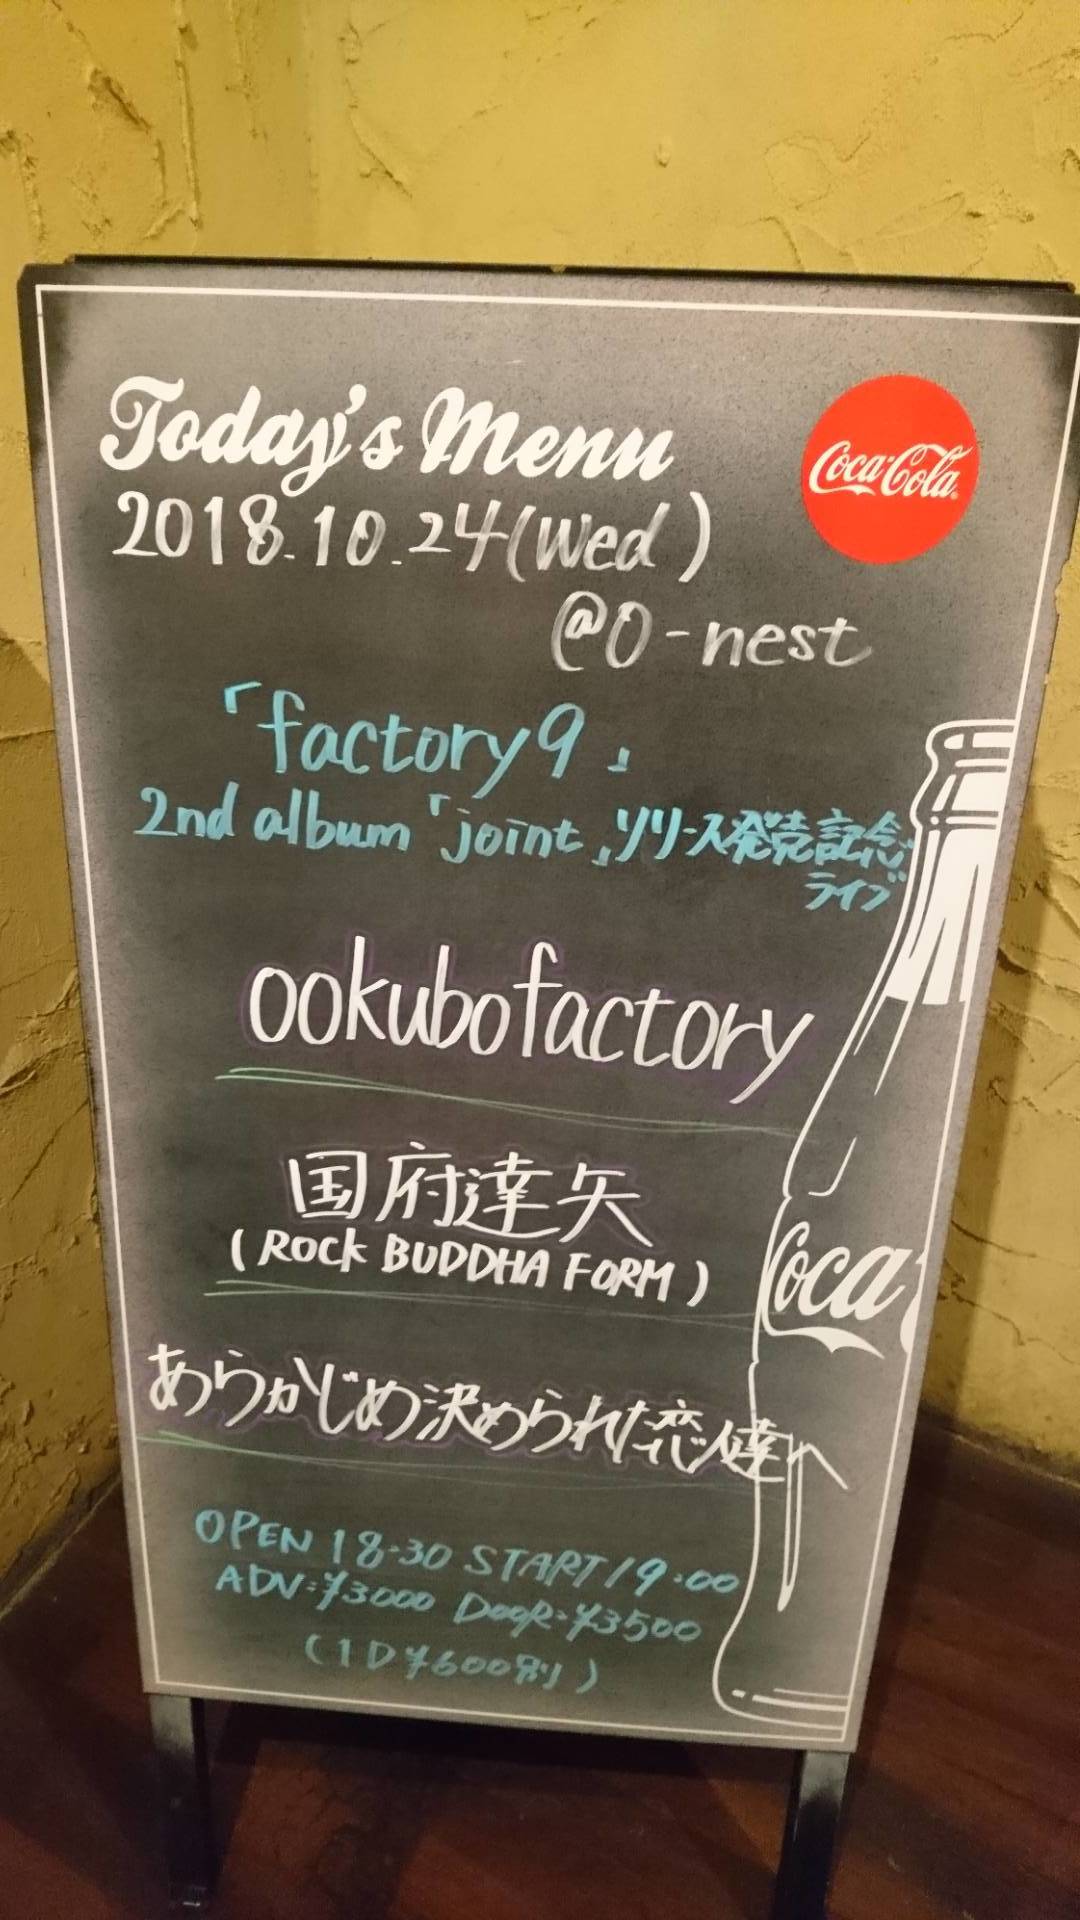 Today's Menu
Coca-Cola
2018.10.24(Wed)
@O-nest
「factory9」
2nd album「joint」リリース発売記念
ライブ
ookubofactory
国府達矢
(ROCK BUDDHA FORM)
Coca
あらかじめ決められた恋人達へ
OPEN 18:30 START 19:00
ADV:¥3000 DOOR:¥3500
(1D¥600別)